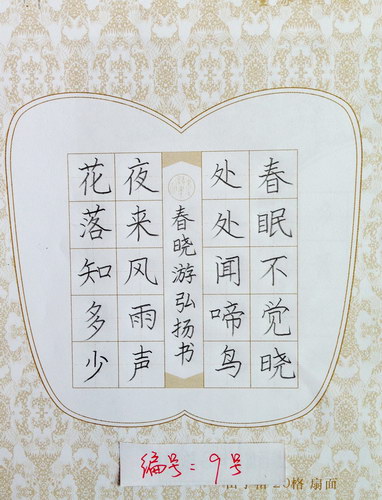 春眠不觉晓
处处闻啼鸟
春晓游弘扬书
夜来风雨声
花落知多少
编号：9号
20格 扇面